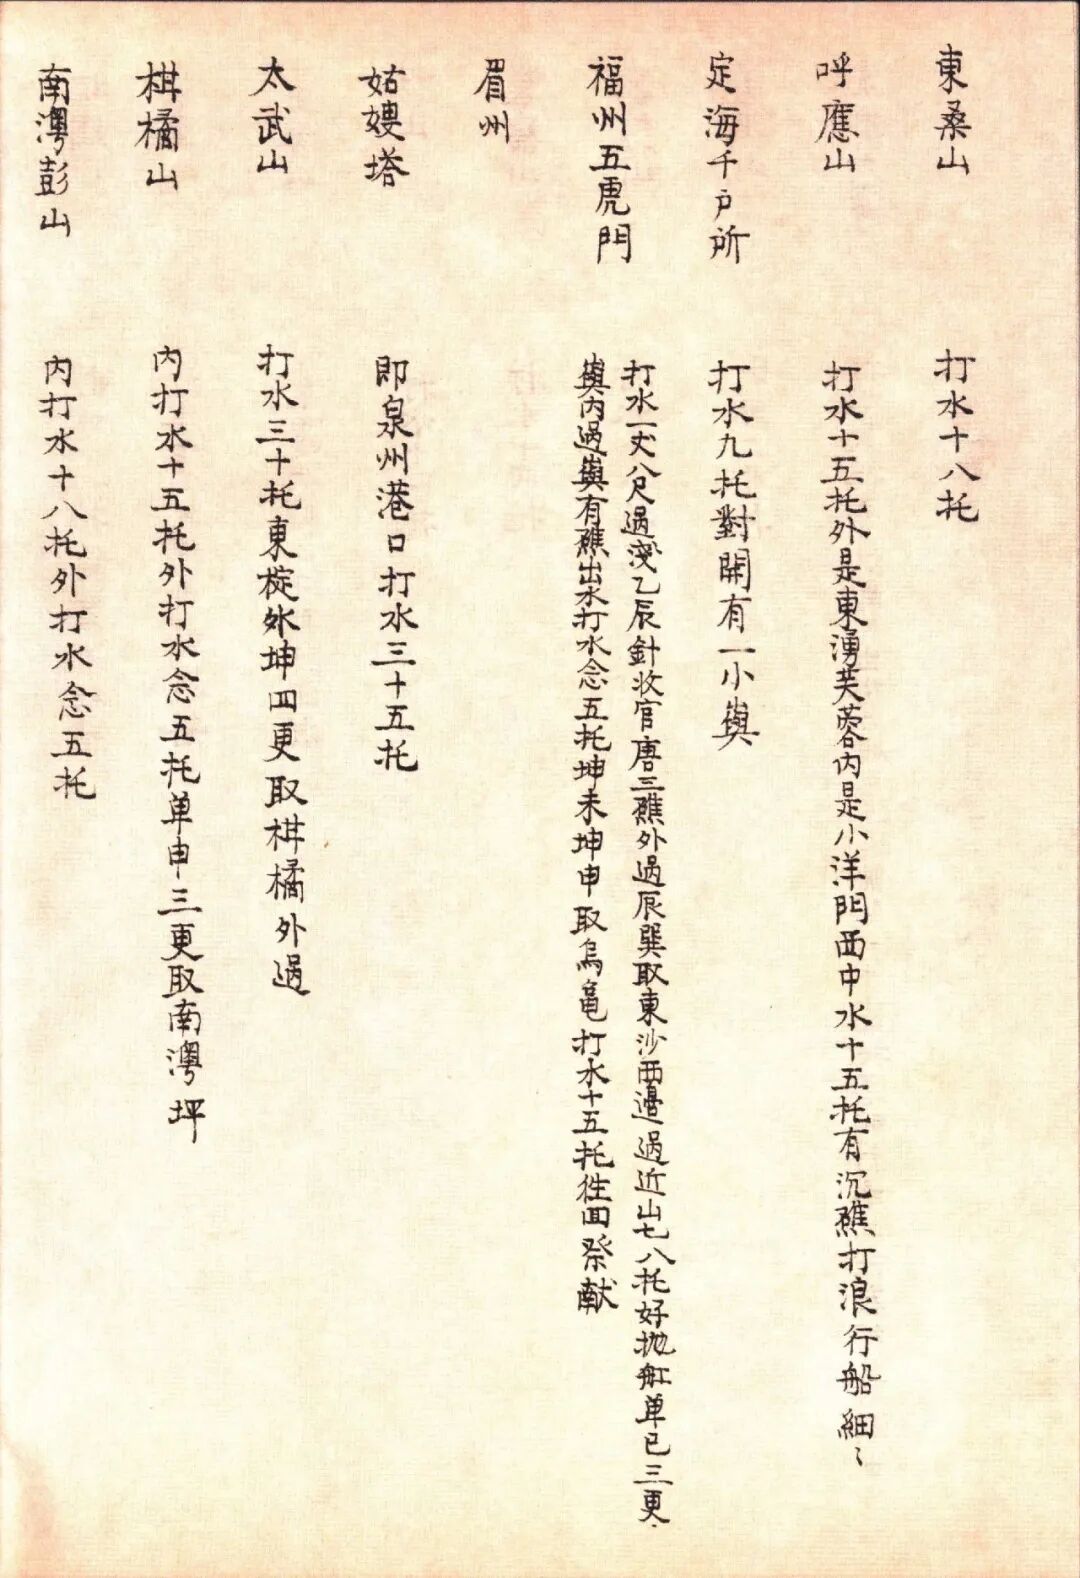 東桑山 打水十八托
呼應山 打水十五托外是東湧芙蓉内是小洋門西中水十五托有沉礁打浪行船細〻
定海千户所 打水九托對開有一小嶼
福州五虎門 打水一丈八尺過淺乙辰針收官唐三礁外過辰巽取東沙西邉過近山七八托好抛舡单巳三更
嶼内過嶼有礁出水打水念五托坤未坤申取烏亀打水十五托徃回祭献
眉州
姑嫂塔 即泉州港口打水三十五托
太武山 打水三十托東椗外坤四更取枏橘外過
枏橘山 内打水十五托外打水念五托单申三更取南澳坪
南澳彭山 内打水十八托外打水念五托